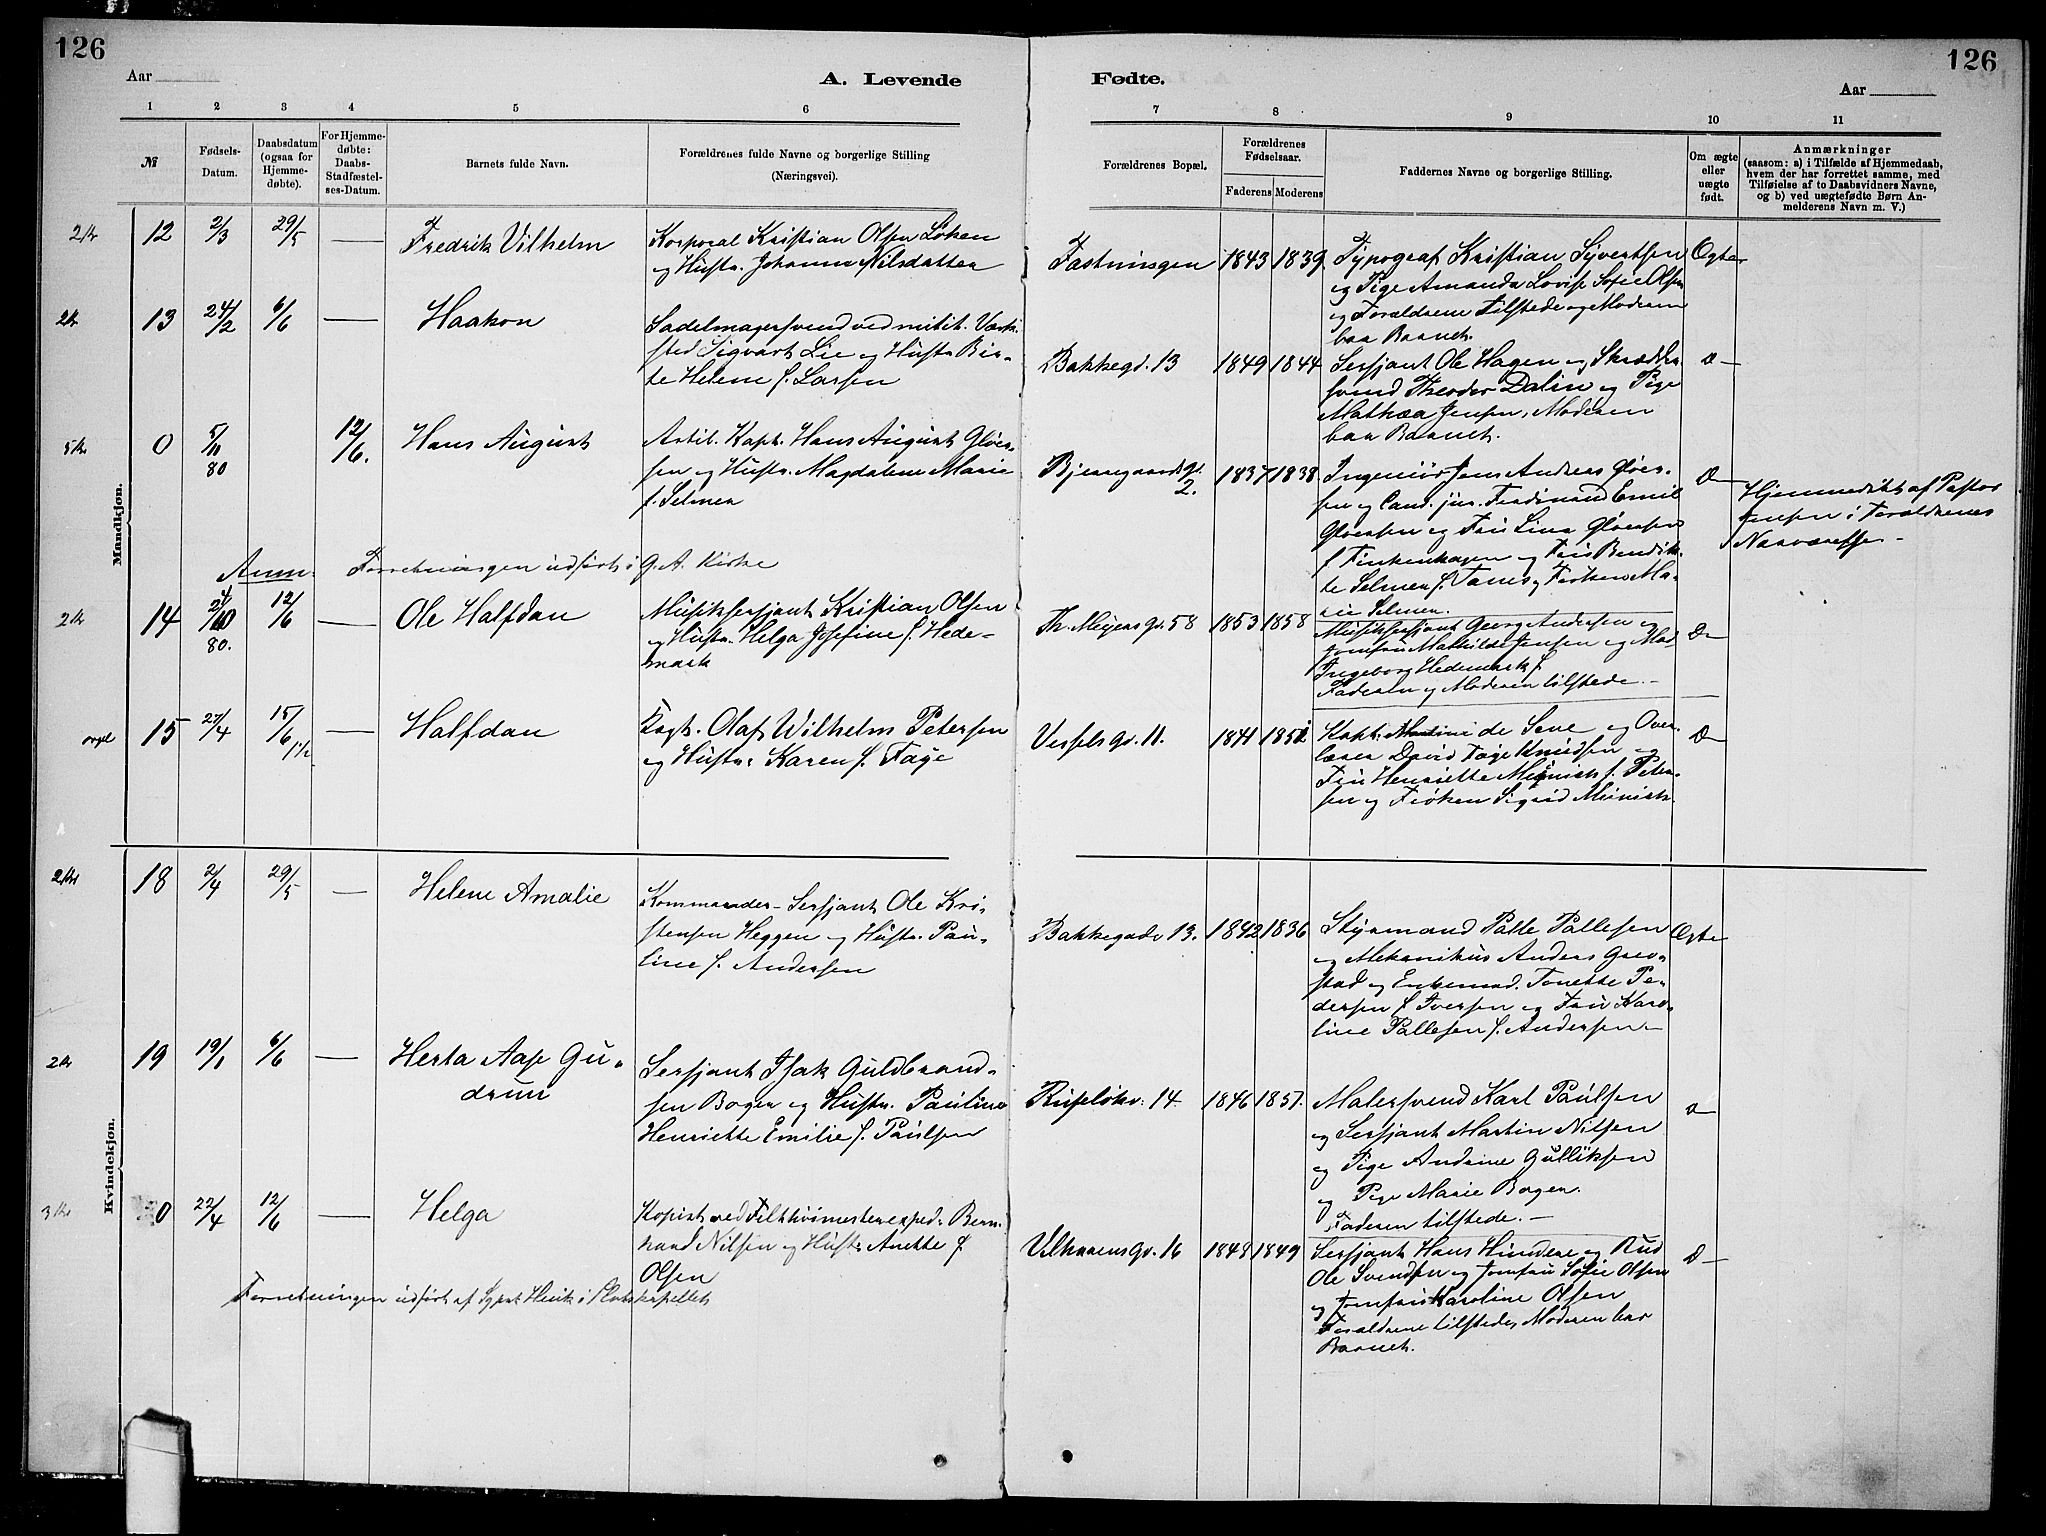 126
126
Aar
A. Levende
Fødte.
Aar
1 2 3 4 5 6
7 8 9 10 11
№
Fødsels-
Datum.
Daabsdatum
(ogsaa for
Hjemme-
døbte).
For Hjemme-
døbte:
Daabs-
Stadfæstel-
ses-Datum.
Barnets fulde Navn.
Forældrenes fulde Navne og borgerlige Stilling
(Næringsvei).
Forældrenes Bopæl.
Forældrenes
Fødselsaar.
Faderens
Moderens
Faddernes Navne og borgerlige Stilling.
Om ægte
eller
uægte
født.
Anmærkninger
(saasom: a) i Tilfælde af Hjemmedaab,
hvem der har forrettet samme, med
Tilføielse af to Daabsvidners Navne,
og b) ved uægtefødte Børn An-
melderens Navn m. V.)
Mandkjøn.
2 kr 12 2/3 29/5 — Fredrik Vilhelm
Korporal Kristian Olsen Løken
og Hustr. Johanne Nilsdatter
Fæstningen 1843 1839
Typograf Kristian Syvertsen
og Pige Amanda Lovise Sofie Olsen
og Forældrene tilstede og Moderen
bar Barnet.
Ægte
2 kr 13 24/2 6/6 — Haakon
Sadelmagersvend ved milit. Værk-
sted Sigvart Lie og Hustr. Bir-
te Helene f. Larsen
Bakkegd. 13 1849 1844
Sersjant Ole Hagen og Skrædder
svend Theodor Dalin og Pige
Mathea Jensen, Moderen
bar Barnet.
D—
5 kr 0 5/11 80 12/6. Hans August
Artil. Kapt. Hans August Gløer-
sen og Hustr. Magdalene Marie
f. Selmer
Bjerregaardsgd. 2. 1837 1838
Ingeniør Jens Andreas Gløer-
sen og Cand. jur. Ferdinand Emil
Gløersen og Fru Lina Gløersen
f. Finkenhagen og Fru Bendik-
te Selmer f. Tanis Frøken Ma-
rie Selmer.
D—
Hjemmedøbt af Pastor
Jensen i Forældrenes
Nærværelse —
Anm. Forretningen udført i G. A. Kirke
2 kr 14 80. 12/6 — Ole Halfdan
Musiksersjant Kristian Olsen
og Hustr. Helga Josefine f. Hede-
mark
Th. Meyersgd. 58 1853 1858
Musiksersjant Georg Andersen og
Jomfru Mathilde Jensen og Mad.
Ingeborg Hedemark f.
Faderen og Moderen tilstede. —
D—
15 27/4 15/6 1/2 — Halfdan
Kapt. Olaf Wilhelm Petersen
og Hustr. Karen f. Faye
Vesselsgd. 11. 1841 1851
Kapt. de Seve og Over-
lærer David Faye Knudsen og
Fru Henriette Münich f. Peter-
sen og Frøken Sigrid Münich.
D—
Kvindekjøn.
2 kr 18 2/4 29/5 — Helene Amalie
Kommander-Sersjant Ole Kri-
stensen Heggen og Hustr. Pau-
line f. Andersen
Bakkegade 13. 1842 1836
Styrmand Palle Pallesen
og Mekanikus Anders Grev-
stad og Enkemad. Tonette Pe-
dersen f. Iversen og Fru Karo-
line Pallesen f. Andersen —
Ægte
2 kr 19 19/1 6/6 — Herta Aase Gu-
drun
Sersjant Isak Guldbrand-
sen Bogen og Hustr. Pauline
Henriette Emilie f. Paulsen
Ruseløkv. 14 1846 1851.
Malersvend Karl Paulsen
og Sersjant Martin Nilsen
og Pige Andrine Gulliksen
og Pige Marie Bogen.
Faderen tilstede. —
D—
3 kr 0 22/4 12/6 — Helga
Kopist ved Feltthøimesterexped. Bern-
hard Nilsen og Hustr. Anette f.
Olsen
Vibhavensgd. 16 1848 1849
Sersjant Hans Hindere og Rud
Ole Svendsen og Jomfru Sofie Olsen
og Jomfru Karoline Olsen
Forældrene tilstede, Moderen bar
Barnet.
D—
Forretningen udført af i Slotskapellet